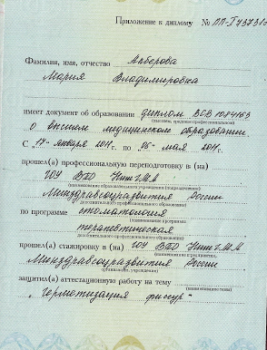 Приложение к диплому № ПП-I
Фамилия, имя, отчество
Мария Владимировна
имеет документ об образовании диплом ВСВ
о высшем медицинском образовании
С 17 января 2011 г. по 26 мая 2011 г.
прошел(а) профессиональную переподготовку в (на)
ГОУ ВПО НижГМА
Минздравсоцразвития России
по программе стоматология
терапевтическая
прошел(а) стажировку в (на) ГОУ ВПО НижГМА
Минздравсоцразвития России
защитил(а) аттестационную работу на тему
"Герметизация фиссур"